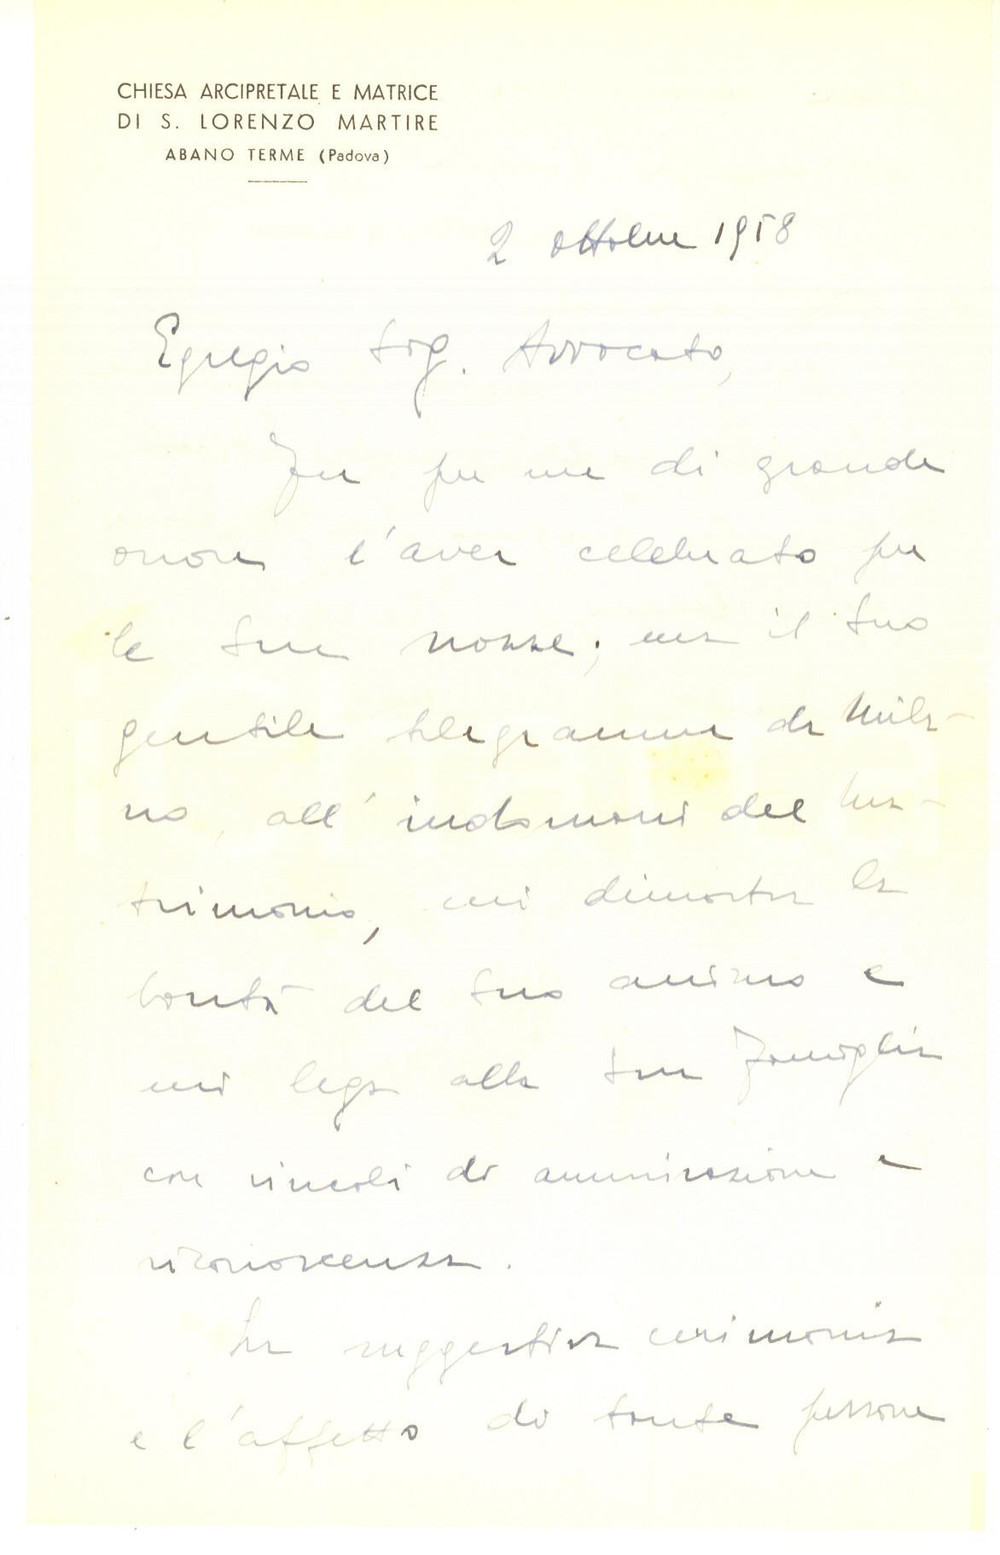 CHIESA ARCIPRETALE E MATRICE
DI S. LORENZO MARTIRE
ABANO TERME (Padova)
2 ottobre 1958
Egregio Sig. Avvocato,
Fu per me di grande
onore l'aver celebrato per
le Sue nozze; ma il Suo
gentile telegramma da Mila-
no, all'indomani del ma-
trimonio, mi dimostra la
bontà del Suo animo e
mi lega alla Sua Famiglia
con vincoli di ammirazione e
riconoscenza.
La suggestiva cerimonia
e l'affetto di tante persone